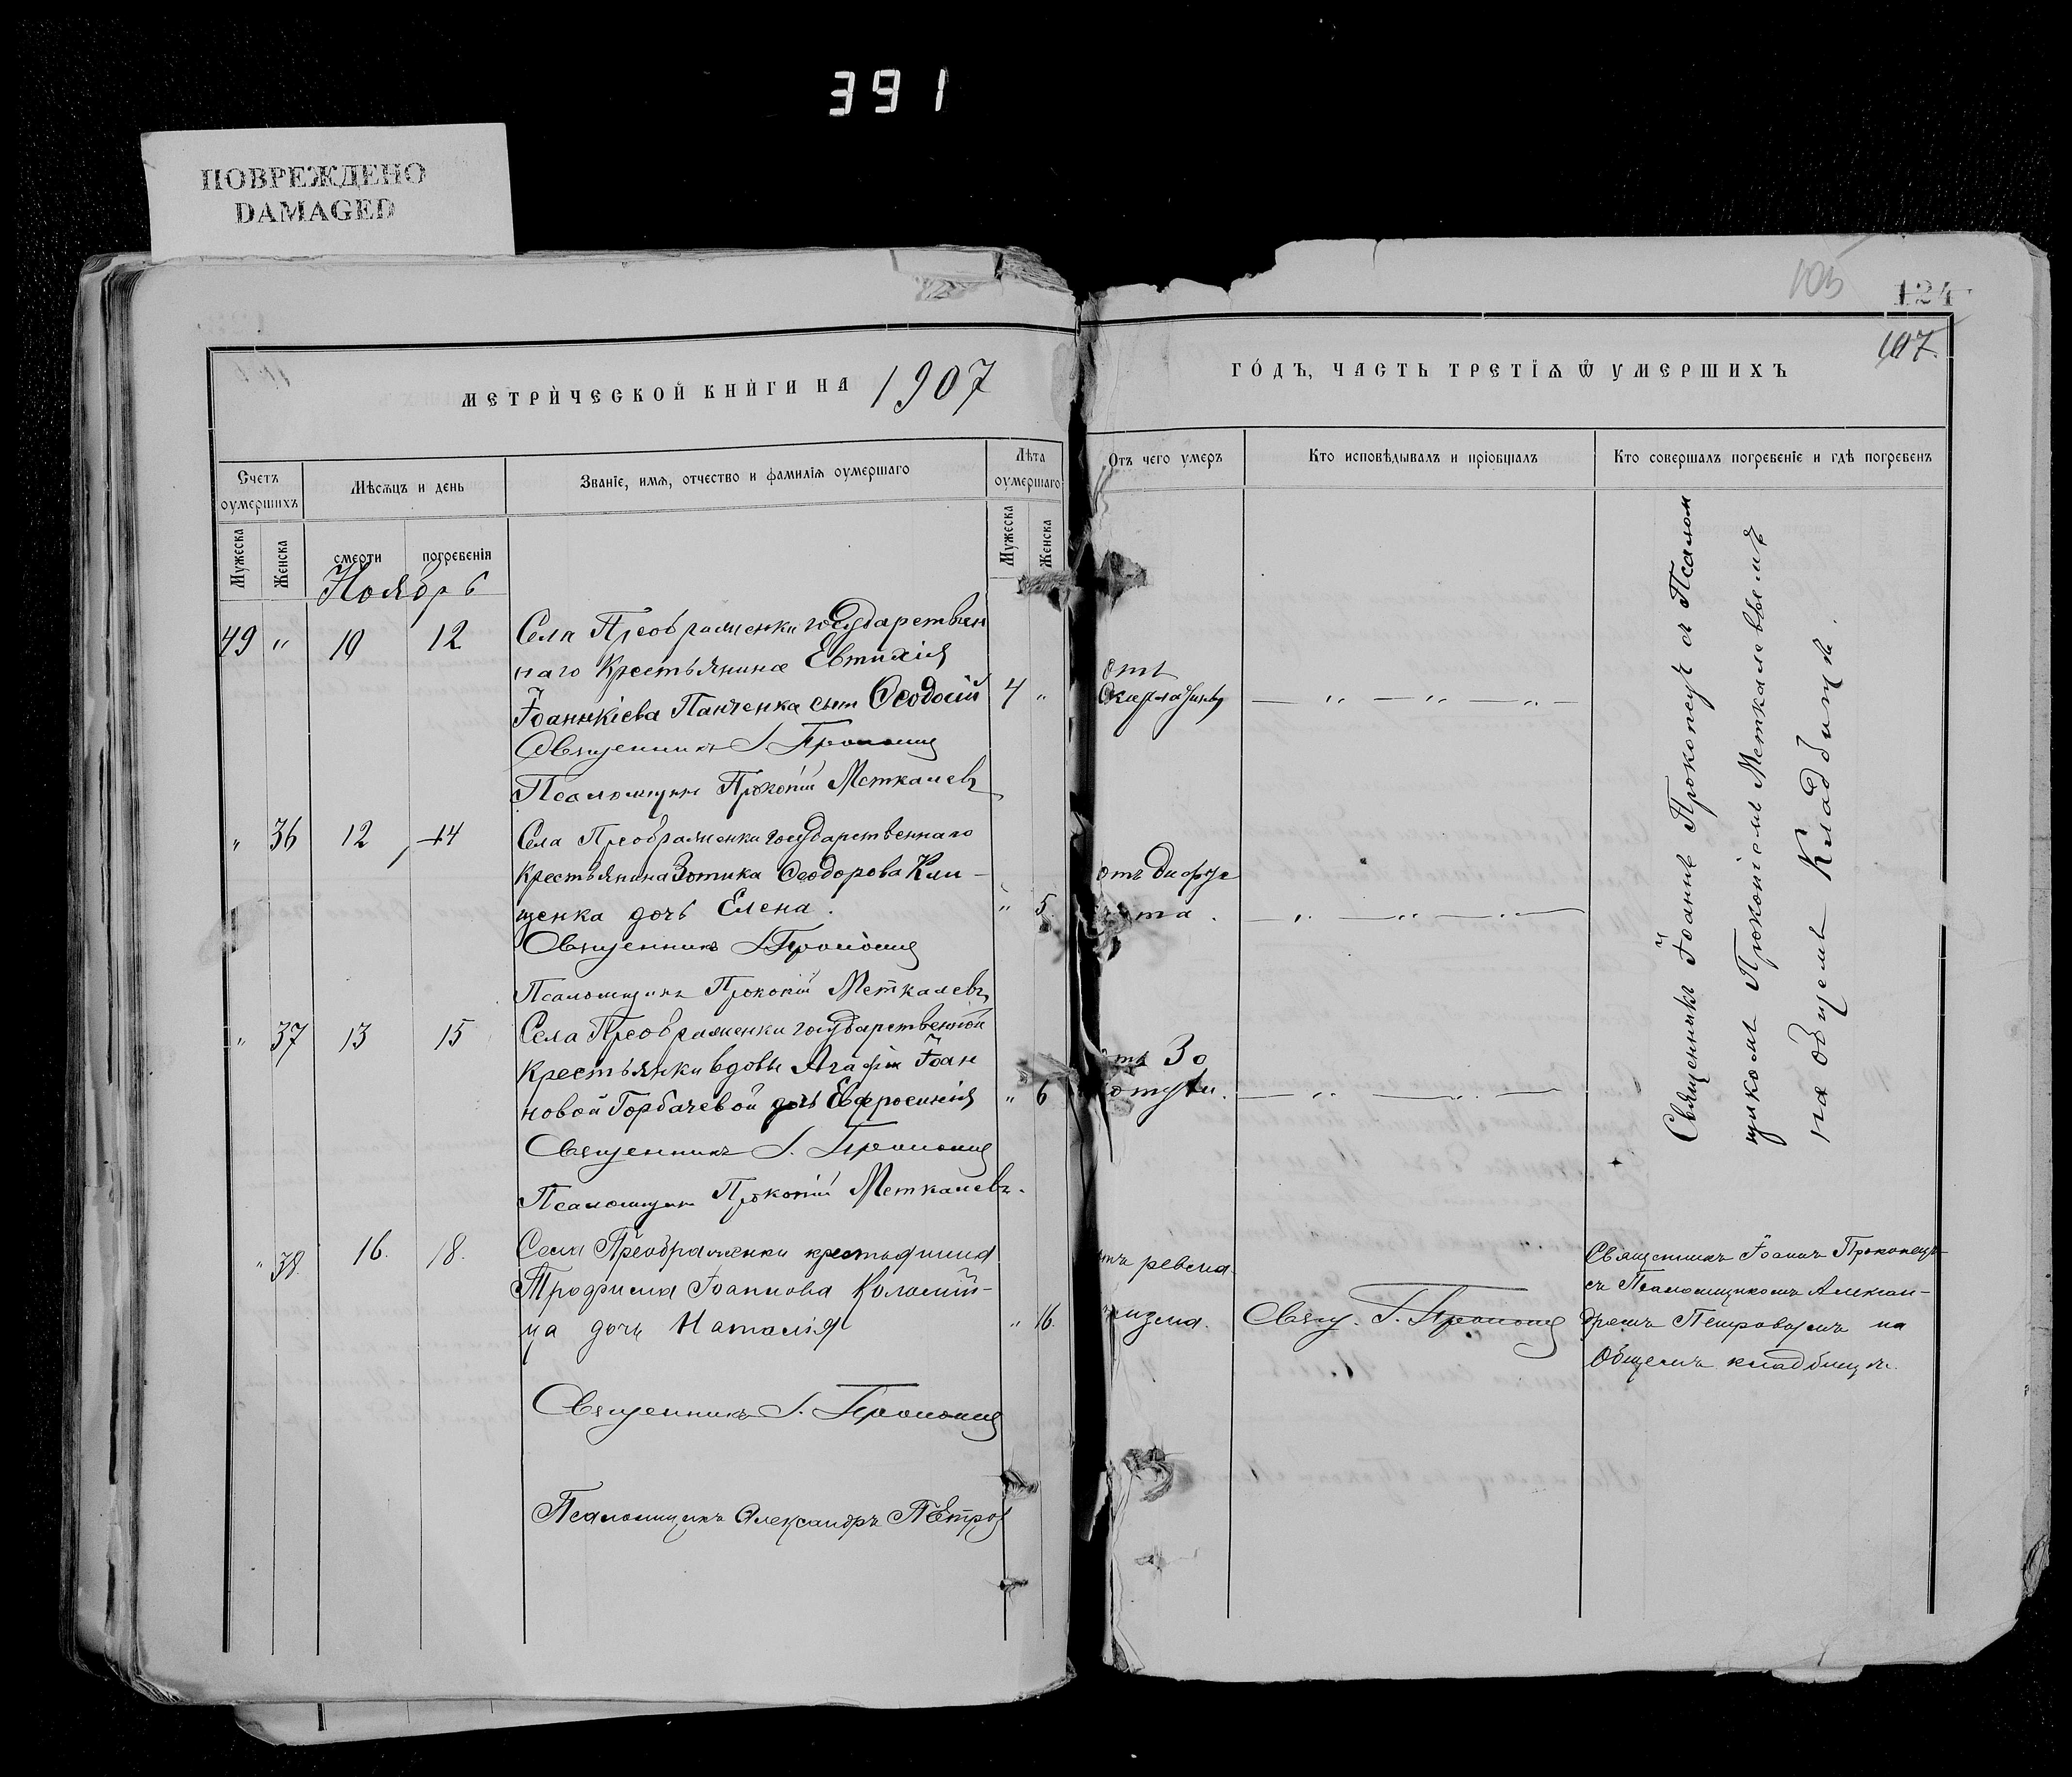 391
ПОВРЕЖДЕНО
DAMAGED
105
124
107.
МЕТРИ́ЧЕСКОЙ КНИ́ГИ НА 1907
ГО́ДЪ, ЧАСТЬ ТРЕТІѦ Ѿ УМЕРШИХЪ
Счетъ оумершихъ
Мѣсяцъ и день
Званіе, имя, отчество и фамилія оумершаго
Лѣта оумершаго
Отъ чего умеръ
Кто исповѣдывалъ и пріобщалъ
Кто совершалъ погребеніе и гдѣ погребенъ
Мужеска
Женска
смерти
погребенія
Мужеска
Женска
Ноябрь
49 " 10 12 Села Преображенки государствен
наго Крестьянина Евтихія
Іоанникіева Панченка сынъ Ѳеодосій 4 "
отъ
Скарлатины — " — " — " —
Священникъ І. Прокопецъ
Псаломщикъ Прокопій Меткалевъ
" 36 12 14 Села Преображенки государственнаго
Крестьянина Зотика Ѳеодорова Кли-
щенка дочь Елена. " 5
отъ Дифте
рита. — " — " — " —
Священникъ І. Прокопецъ
Псаломщикъ Прокопій Меткалевъ
" 37 13 15 Села Преображенки государственной
Крестьянки вдовы Агафіи Іоан
новой Горбачевой дочь Евфросинія " 6
отъ Зо
лотухи. — " — " —
Священникъ І. Прокопецъ
Псаломщикъ Прокопій Меткалевъ.
Священникъ Іоаннъ Прокопецъ съ Псалом
щикомъ Прокопіемъ Меткалевымъ
на общемъ Кладбищѣ.
" 38. 16. 18. Села Преображенки крестьянина
Трофима Іоаннова Коломій-
ца дочь Наталія " 16.
отъ ревма
тизма. Свящ. І. Прокопецъ
Священникъ Іоаннъ Прокопецъ
съ Псаломщикомъ Алексан-
дромъ Петровымъ на
Общемъ кладбищѣ.
Священникъ І. Прокопецъ
Псаломщикъ Александръ Петров